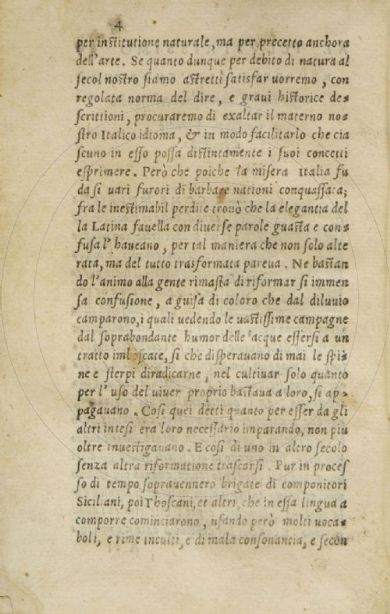 4
per institutione naturale, ma per precetto anchora
dell'arte. Se quanto dunque per debito di natura al
secol nostro siamo astretti satisfar uorremo, con
regolata norma del dire, e graui historice de-
scrittioni, procuraremo di exaltar il materno no-
stro Italico idioma, & in modo facilitarlo che cia
scuno in esso possa distintamente i suoi concetti
esprimere. Però che poiche la misera italia fu
da si uari furori di barbare nationi conquassata;
fra le inestimabil perdite trouò che la elegantia del
la Latina fauella con diuerse parole guasta e con-
fusa l'haueano, per tal maniera che non solo alte
rata, ma del tutto trasformata pareua. Ne bastan
do l'animo alla gente rimasta di riformar si immen
sa confusione, a guisa di coloro che dal diluuio
camparono, i quali uedendo le uastissime campagne
dal soprabondante humor delle acque essersi a un
tratto imboscate, si che disperauano di mai le spi-
ne e sterpi diradicarne, nel cultiuar solo quanto
per l'uso del uiuer proprio bastaua a loro, si ap-
pagauano. Cosi quei detti quanto per esser da gli
altri intesi era loro necessario imparando, non piu
oltre inuestigauano. E cosi di uno in altro secolo
senza altra riformatione trascorsi. Pur in proces
so di tempo soprauennero brigate di componitori
Siciliani, poi Thoscani, et altri, che in essa lingua a
comporre cominciarono, usando però molti uoca-
boli, e rime inculti, e di mala consonantia, e secon